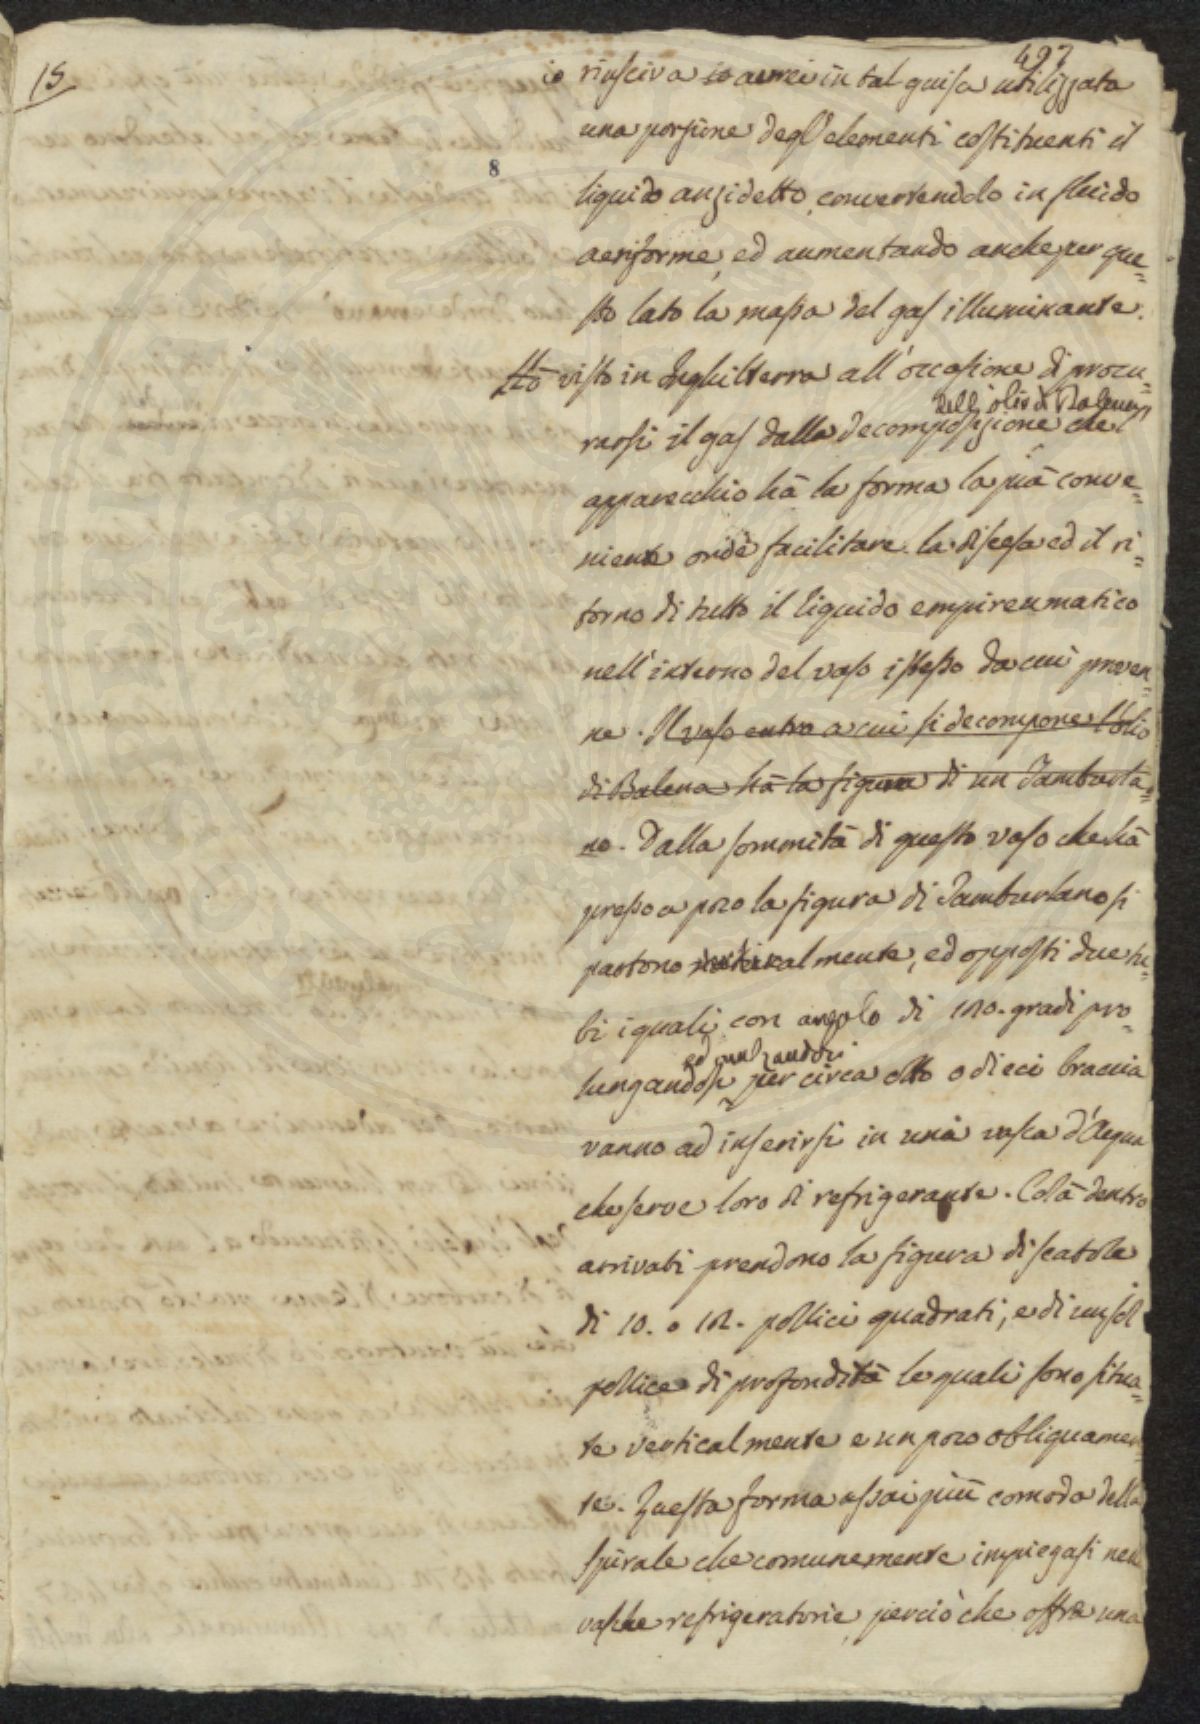 15
497
io riusciva io avrei in tal guisa utilizzata
una porzione degl'elementi costituenti il
8
liquido anzidetto, convertendolo in fluido
aeriforme, ed aumentando anche per que=
sto lato la massa del gas illuminante.
Hò visto in Inghilterra all'occasione di procu=
dell'olio di Balena
rarsi il gas dalla decomposizione che l'
apparecchio hà la forma la più conve=
niente onde facilitare la discesa ed il ri=
torno di tutto il liquido empireumatico
nell'interno del vaso istesso da cui proven=
ne. Il vaso entro a cui si decompone l'olio
di Balena hà la figura di un Tamburla=
no. Dalla sommità di questo vaso che hà
presso a poco la figura di Tamburlano si
partono lateralmente, ed opposti due tu=
bi i quali con angolo di 120. gradi pro=
ed innalzandosi
lungandosi per circa otto o dieci braccia
vanno ad inserirsi in una vasca d'Acqua
che serve loro di refrigerante. Colà dentro
arrivati prendono la figura di scatole
di 10. o 12. pollici quadrati, e di un sol
pollice di profondità le quali sono situa=
te verticalmente e un poco obliquamen
te. Questa forma assai più comoda della
spirale che comunemente impiegasi nelle
vasche refrigeratorie, perciò che offre una